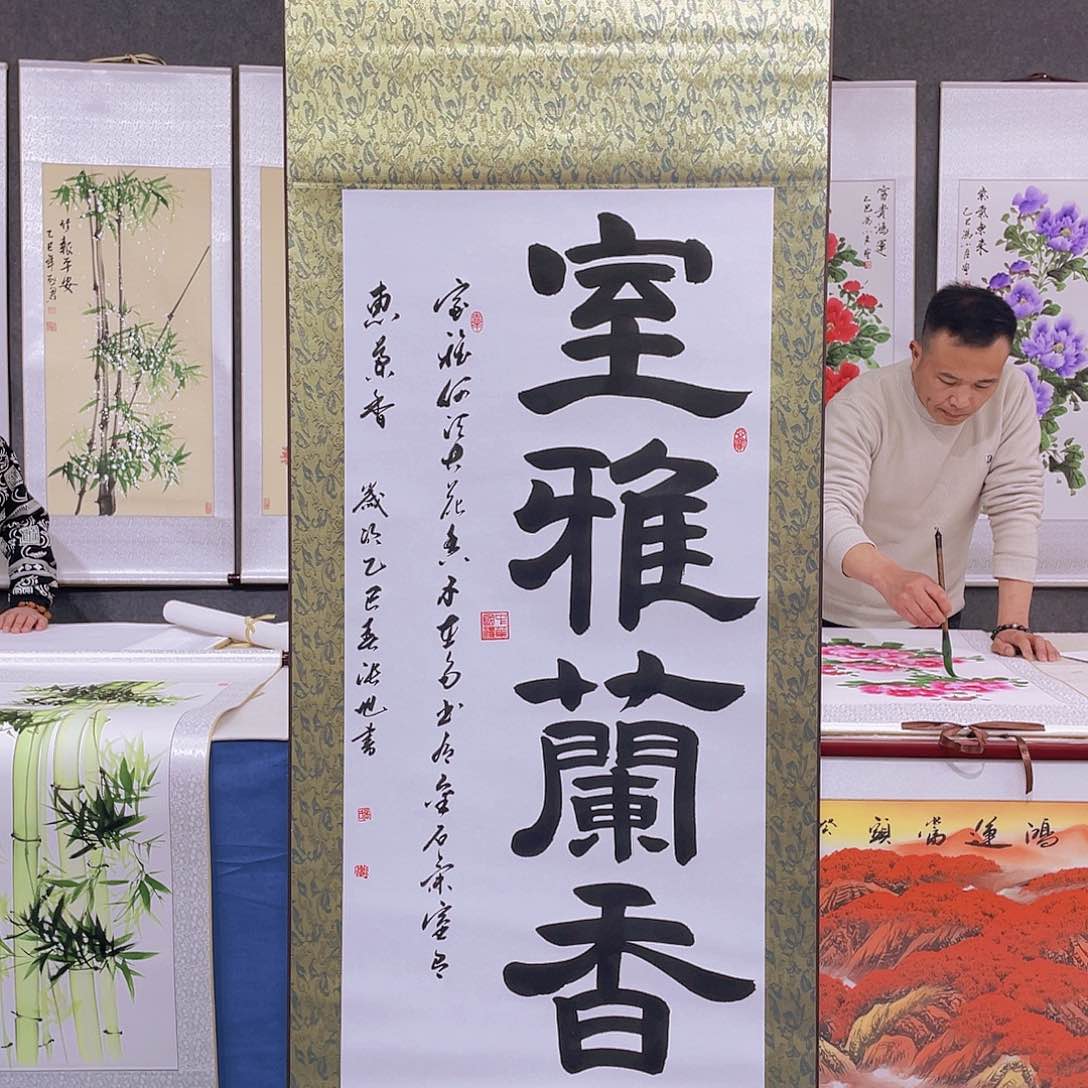 室雅蘭香
室雅何須大花香不在多書有金石氣室有
惠蘭香 歲次乙巳春旭書
竹報平安
乙巳年
富貴鴻運
乙巳
紫氣東來
乙巳
鴻運當頭